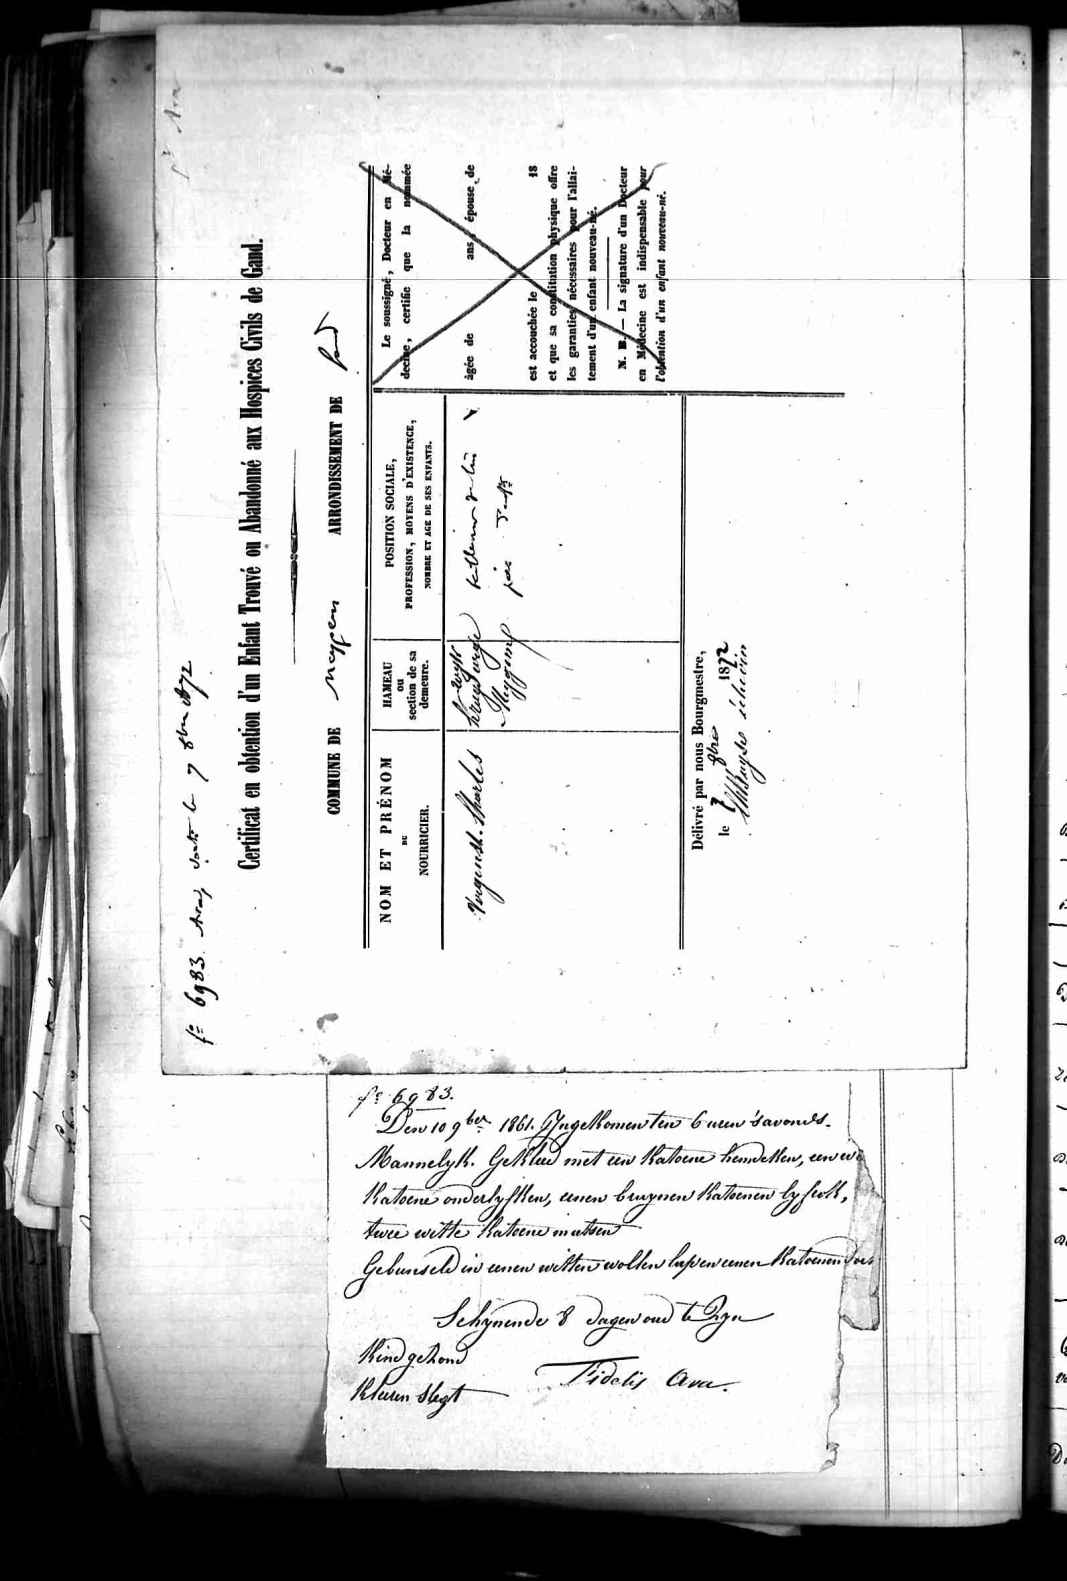 fo 6983. Ava, sorti le 7 8bre 1872
Certificat en obtention d'un Enfant Trouvé ou Abandonné aux Hospices Civils de Gand.
COMMUNE DE Meygem ARRONDISSEMENT DE Gand
NOM ET PRÉNOM
DU
NOURRICIER.
HAMEAU
ou
section de sa
demeure.
POSITION SOCIALE,
PROFESSION, MOYENS D'EXISTENCE,
NOMBRE ET AGE DE SES ENFANTS.
Le soussigné, Docteur en Mé-
decine, certifie que la nommée
âgée de ans, épouse de
est accouchée le 18
et que sa constitution physique offre
les garanties nécessaires pour l'allai-
tement d'un enfant nouveau-né.
N. B. — La signature d'un Docteur
en Médecine est indispensable pour
l'obtention d'un enfant nouveau-né.
Charles
Meygem
Délivré par nous Bourgmestre,
le 7 8bre 1872
échevin
fo 6983.
Den 10 9ber 1861. Ingekomen ten 6 uren 's avonds.
Mannelyk. Gekleed met een Katoene hemdeken, een
Katoene onderlyfken, eenen bruynen Katoenen lyfrok,
twee witte Katoene mutsen
Gebunseld in eenen witten wollen lap en eenen Katoenen
Schynende 8 dagen oud te Zyn
Kind gezond
Fidelis Ava.
Kleeren Slegt